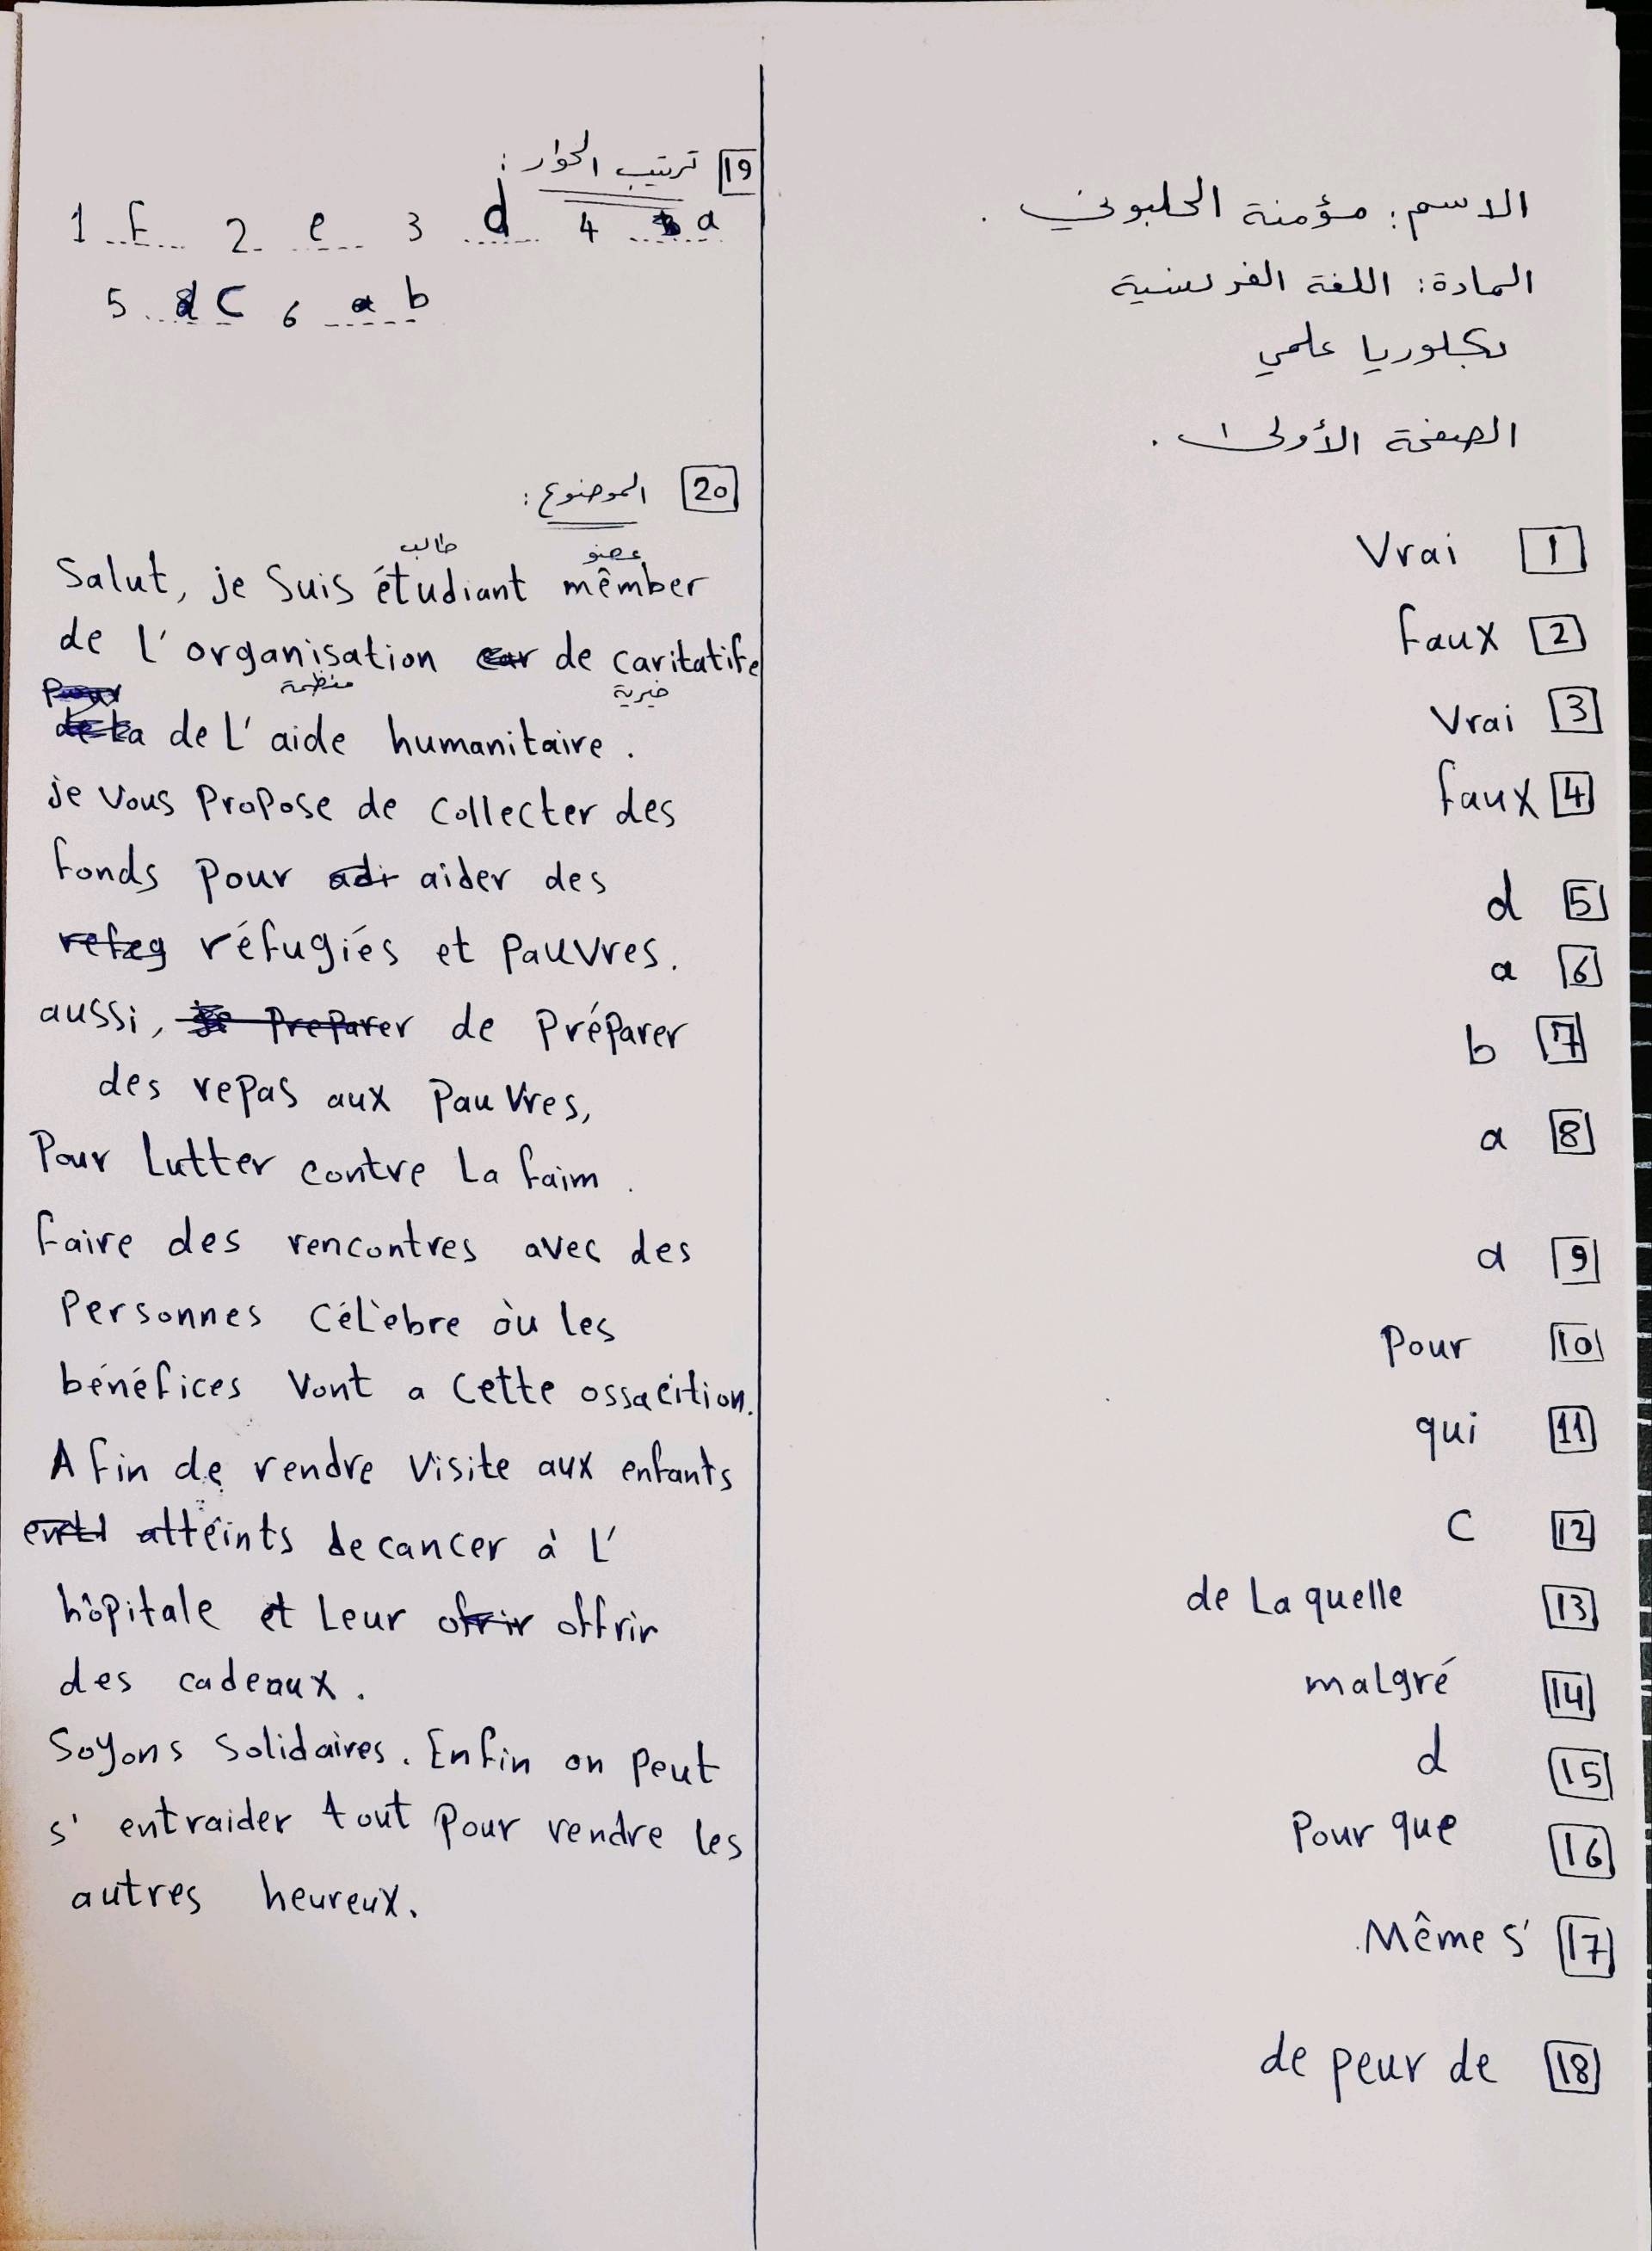 الاسم: مؤمنة الحلبوني.
المادة: اللغة الفرنسية
بكلوريا علمي
الصفحة الأولى ١.
Vrai 1
Faux 2
Vrai 3
Faux 4
d 5
a 6
b 7
a 8
d 9
Pour 10
qui 11
C 12
de La quelle 13
malgré 14
d 15
Pour que 16
Même s' 17
de peur de 18
19 ترتيب الحوار:
1 F 2 e 3 d 4 a
5 C 6 b
20 الموضوع:
طالب عضو
Salut, je Suis étudiant mêmber
de l'organisation car de caritatife
منظمة خيرية
Pour
de La de L'aide humanitaire.
je Vous Propose de Collecter des
Fonds pour adi aider des
refeg réfugiés et Pauvres.
aussi, je Preparer de Préparer
des repas aux Pauvres,
Pour Lutter contre La faim.
Faire des rencontres avec des
Personnes Célèbre òu les
bénéfices Vont a Cette ossacition.
A Fin de rendre Visite aux enfants
attéints de cancer à L'
hôpitale et Leur ofrir offrir
des cadeaux.
Soyons Solidaires. Enfin on Peut
s'entraider tout Pour rendre les
autres heureux.